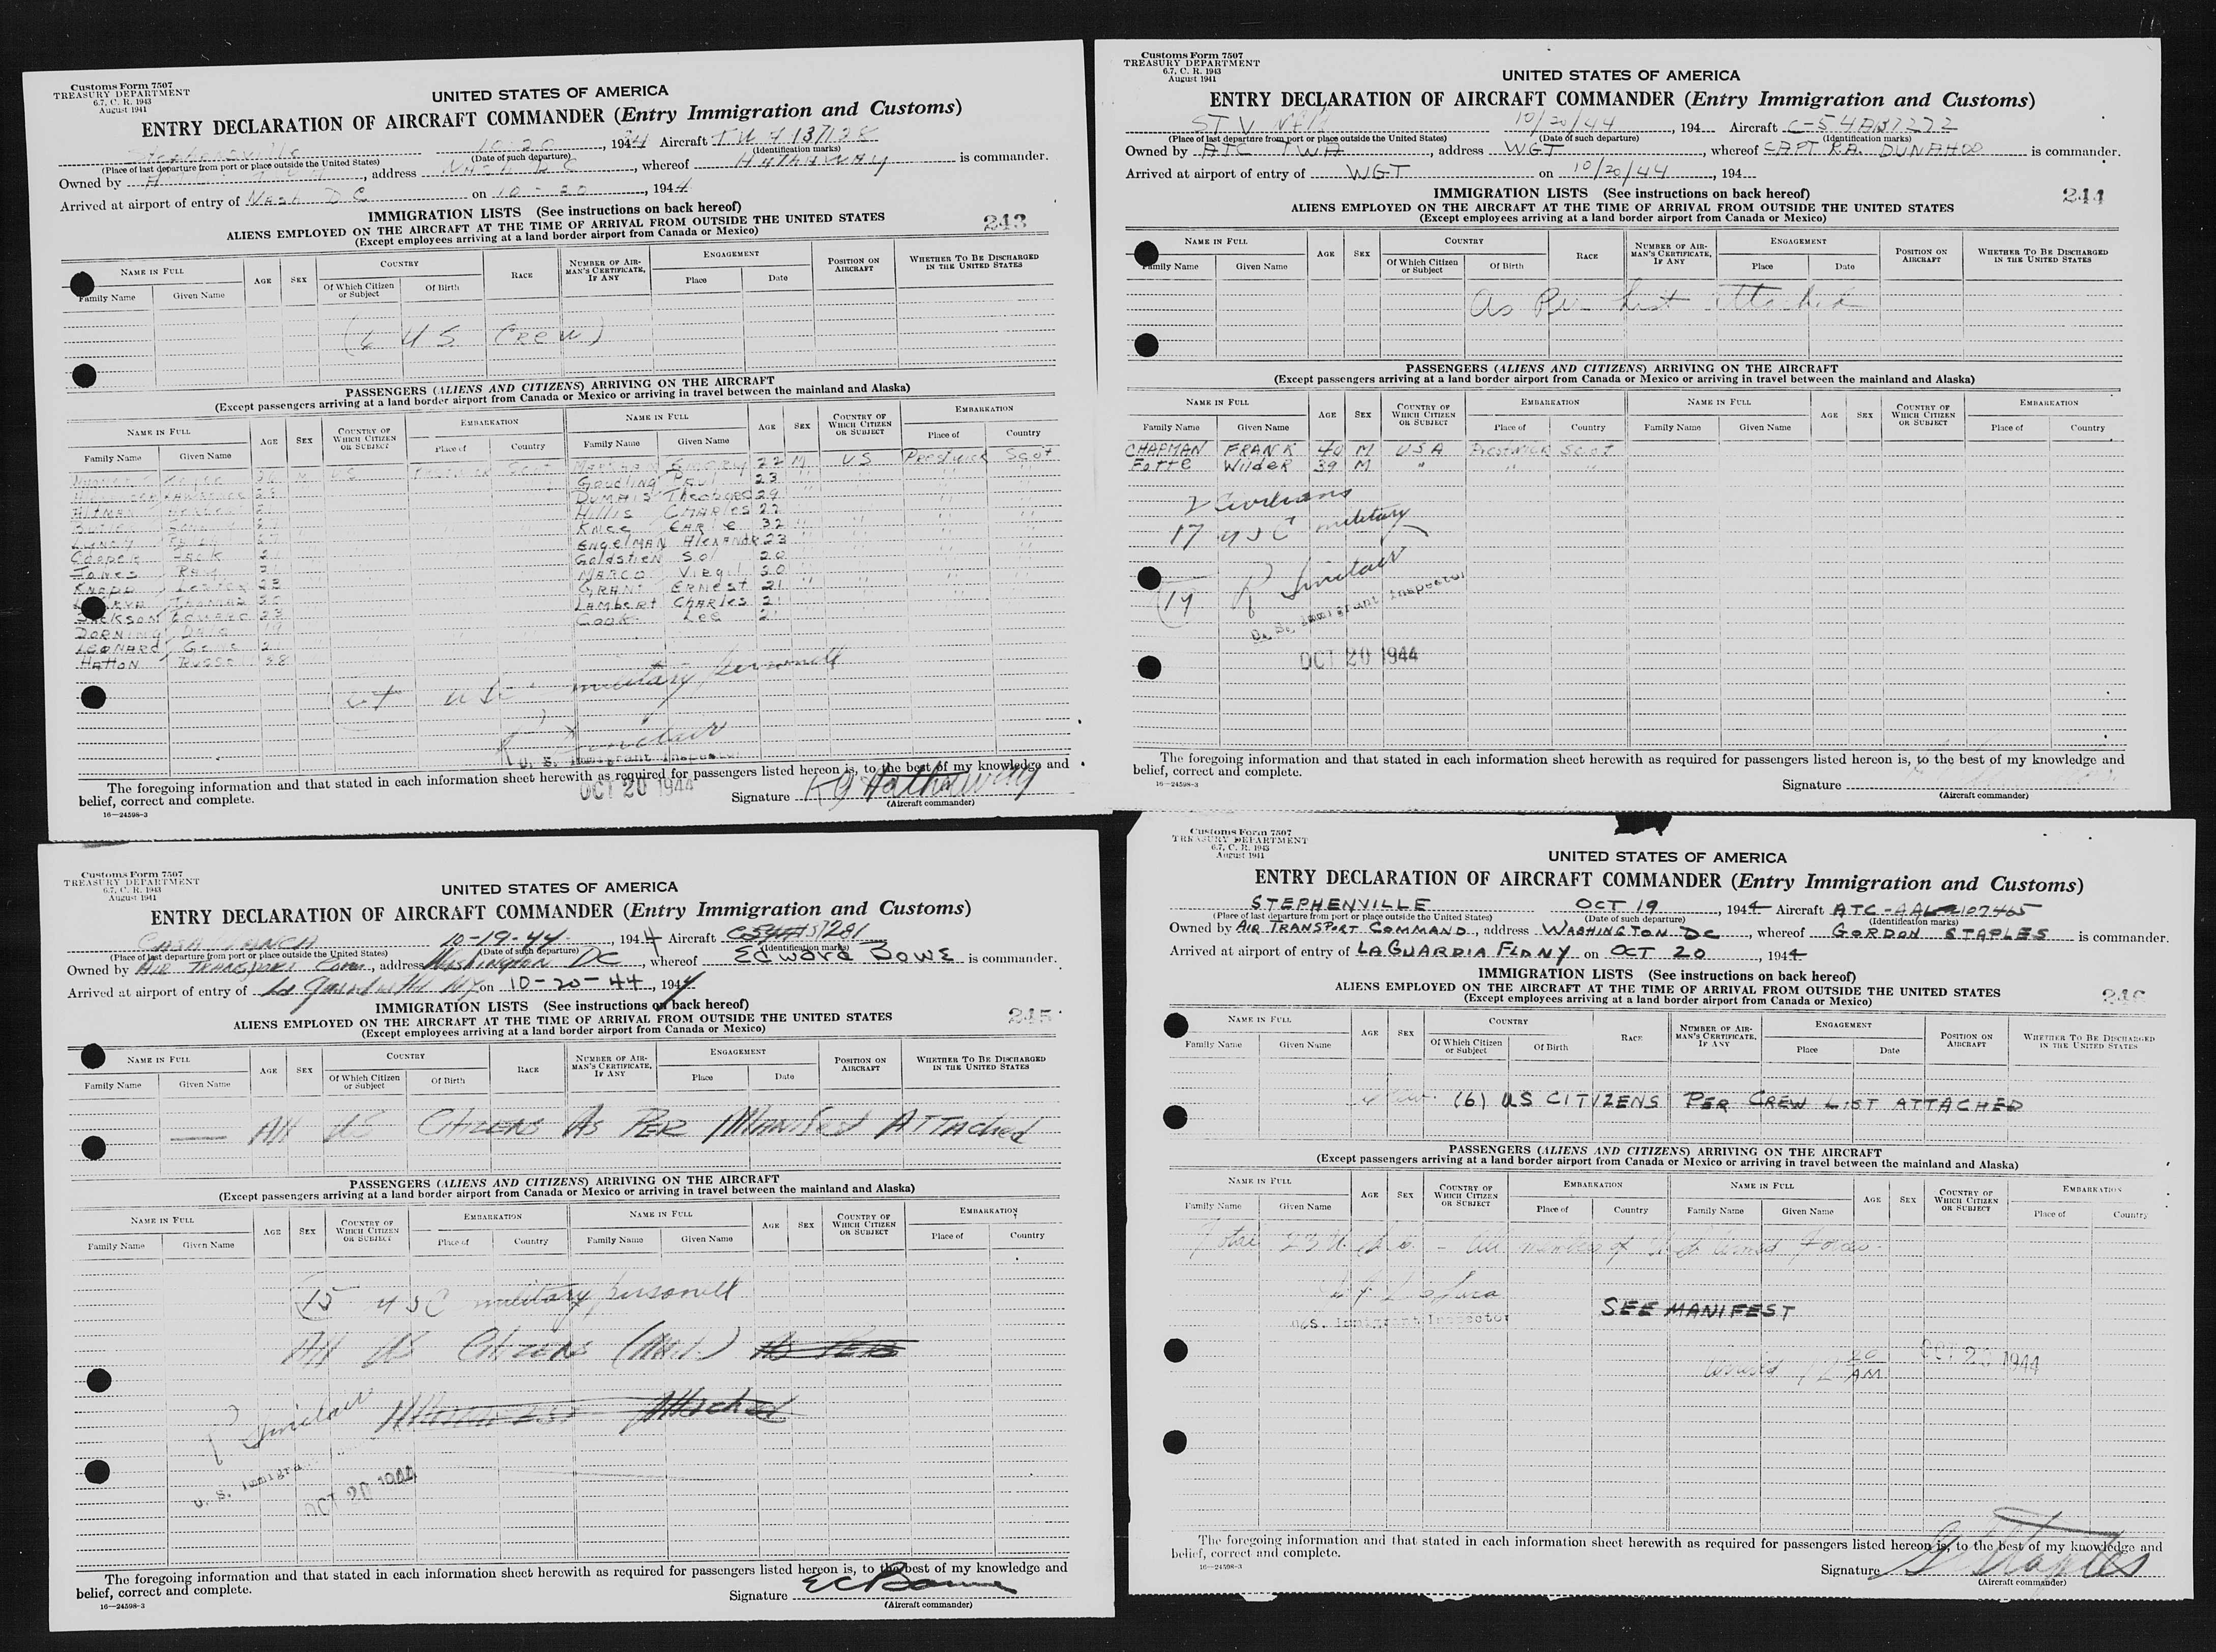 Customs Form 7507
TREASURY DEPARTMENT
6.7, C. R. 1943
August 1941
UNITED STATES OF AMERICA
ENTRY DECLARATION OF AIRCRAFT COMMANDER (Entry Immigration and Customs)
Stephenville 10-20, 1944 Aircraft TWA 137128
(Place of last departure from port or place outside the United States) (Date of such departure) (Identification marks)
Owned by , address Wash DC, whereof HATHAWAY is commander.
Arrived at airport of entry of Wash DC on 10-20, 1944
IMMIGRATION LISTS (See instructions on back hereof)
ALIENS EMPLOYED ON THE AIRCRAFT AT THE TIME OF ARRIVAL FROM OUTSIDE THE UNITED STATES
243
(Except employees arriving at a land border airport from Canada or Mexico)
NAME IN FULL AGE SEX COUNTRY RACE NUMBER OF AIRMAN'S CERTIFICATE, IF ANY ENGAGEMENT POSITION ON AIRCRAFT WHETHER TO BE DISCHARGED IN THE UNITED STATES
Family Name Given Name Of Which Citizen or Subject Of Birth Place Date
(6 US Crew)
PASSENGERS (ALIENS AND CITIZENS) ARRIVING ON THE AIRCRAFT
(Except passengers arriving at a land border airport from Canada or Mexico or arriving in travel between the mainland and Alaska)
NAME IN FULL AGE SEX COUNTRY OF WHICH CITIZEN OR SUBJECT EMBARKATION NAME IN FULL AGE SEX COUNTRY OF WHICH CITIZEN OR SUBJECT EMBARKATION
Family Name Given Name Place of Country Family Name Given Name Place of Country
M US Prestwick Scot 22 M US Prestwick Scot
LAWRENCE Goudling Paul 23
ALTMAN DUMAIS Theodore 29
Hillis CHARles 22
KNEE EARle 32
COOPER JACK ENgelMAN AlexANdR 23
JONES RAY Goldstien Sol 20
KNAPP LESTER 23 MARCO Virgil 20
THOMAS GRANT ERNEST 21
JACKSON EDWARD 23 LAMBERT CHARles 21
DORNING DALE 19 COOK Lee 21
LEONARD GENE
HATTON RUSSell 28
USC military personnell
R Sinclair
U. S. Immigrant Inspector
The foregoing information and that stated in each information sheet herewith as required for passengers listed hereon is, to the best of my knowledge and
belief, correct and complete.
OCT 20 1944
Signature KG Hathaway
(Aircraft commander)
16—24598-3
Customs Form 7507
TREASURY DEPARTMENT
6.7, C. R. 1943
August 1941
UNITED STATES OF AMERICA
ENTRY DECLARATION OF AIRCRAFT COMMANDER (Entry Immigration and Customs)
STV 10/20/44, 194 Aircraft C-54 37272
(Place of last departure from port or place outside the United States) (Date of such departure) (Identification marks)
Owned by ATC TWA, address WGT, whereof CAPT R.A. DUNAHOO is commander.
Arrived at airport of entry of WGT on 10/20/44, 194
IMMIGRATION LISTS (See instructions on back hereof)
244
ALIENS EMPLOYED ON THE AIRCRAFT AT THE TIME OF ARRIVAL FROM OUTSIDE THE UNITED STATES
(Except employees arriving at a land border airport from Canada or Mexico)
NAME IN FULL AGE SEX COUNTRY RACE NUMBER OF AIRMAN'S CERTIFICATE, IF ANY ENGAGEMENT POSITION ON AIRCRAFT WHETHER TO BE DISCHARGED IN THE UNITED STATES
Family Name Given Name Of Which Citizen or Subject Of Birth Place Date
As Per List Attached
PASSENGERS (ALIENS AND CITIZENS) ARRIVING ON THE AIRCRAFT
(Except passengers arriving at a land border airport from Canada or Mexico or arriving in travel between the mainland and Alaska)
NAME IN FULL AGE SEX COUNTRY OF WHICH CITIZEN OR SUBJECT EMBARKATION NAME IN FULL AGE SEX COUNTRY OF WHICH CITIZEN OR SUBJECT EMBARKATION
Family Name Given Name Place of Country Family Name Given Name Place of Country
CHAPMAN FRANK 40 M USA Prestwick Scot
Fotte Wilder 39 M " " "
2 Civilians
17 USC military
19 R Sinclair
U. S. Immigrant Inspector
OCT 20 1944
The foregoing information and that stated in each information sheet herewith as required for passengers listed hereon is, to the best of my knowledge and
belief, correct and complete.
Signature
(Aircraft commander)
16—24598-3
Customs Form 7507
TREASURY DEPARTMENT
6.7, C. R. 1943
August 1941
UNITED STATES OF AMERICA
ENTRY DECLARATION OF AIRCRAFT COMMANDER (Entry Immigration and Customs)
CASABLANCA 10-19-44, 1944 Aircraft 37281
(Place of last departure from port or place outside the United States) (Date of such departure) (Identification marks)
Owned by Air Transport Com, address Washington DC, whereof Edward Bowe is commander.
Arrived at airport of entry of La Guardia NY on 10-20-44, 194
IMMIGRATION LISTS (See instructions on back hereof)
ALIENS EMPLOYED ON THE AIRCRAFT AT THE TIME OF ARRIVAL FROM OUTSIDE THE UNITED STATES
245
(Except employees arriving at a land border airport from Canada or Mexico)
NAME IN FULL AGE SEX COUNTRY RACE NUMBER OF AIRMAN'S CERTIFICATE, IF ANY ENGAGEMENT POSITION ON AIRCRAFT WHETHER TO BE DISCHARGED IN THE UNITED STATES
Family Name Given Name Of Which Citizen or Subject Of Birth Place Date
All US Citizens As PER Manifest ATTached
PASSENGERS (ALIENS AND CITIZENS) ARRIVING ON THE AIRCRAFT
(Except passengers arriving at a land border airport from Canada or Mexico or arriving in travel between the mainland and Alaska)
NAME IN FULL AGE SEX COUNTRY OF WHICH CITIZEN OR SUBJECT EMBARKATION NAME IN FULL AGE SEX COUNTRY OF WHICH CITIZEN OR SUBJECT EMBARKATION
Family Name Given Name Place of Country Family Name Given Name Place of Country
15 USC military personell
All US Citizens (Mil.) As Per
Attached
R Sinclair
U. S. Immigra
OCT 20 1944
The foregoing information and that stated in each information sheet herewith as required for passengers listed hereon is, to the best of my knowledge and
belief, correct and complete.
Signature
(Aircraft commander)
16—24598-3
Customs Form 7507
TREASURY DEPARTMENT
6.7, C. R. 1943
August 1941
UNITED STATES OF AMERICA
ENTRY DECLARATION OF AIRCRAFT COMMANDER (Entry Immigration and Customs)
STEPHENVILLE OCT 19, 1944 Aircraft ATC-AAL-2107465
(Place of last departure from port or place outside the United States) (Date of such departure) (Identification marks)
Owned by AIR TRANSPORT COMMAND, address WASHINGTON DC, whereof GORDON STAPLES is commander.
Arrived at airport of entry of LAGUARDIA FLD NY on OCT 20, 1944
IMMIGRATION LISTS (See instructions on back hereof)
ALIENS EMPLOYED ON THE AIRCRAFT AT THE TIME OF ARRIVAL FROM OUTSIDE THE UNITED STATES
246
(Except employees arriving at a land border airport from Canada or Mexico)
NAME IN FULL AGE SEX COUNTRY RACE NUMBER OF AIRMAN'S CERTIFICATE, IF ANY ENGAGEMENT POSITION ON AIRCRAFT WHETHER TO BE DISCHARGED IN THE UNITED STATES
Family Name Given Name Of Which Citizen or Subject Of Birth Place Date
(6) US CITIZENS PER CREW LIST ATTACHED
PASSENGERS (ALIENS AND CITIZENS) ARRIVING ON THE AIRCRAFT
(Except passengers arriving at a land border airport from Canada or Mexico or arriving in travel between the mainland and Alaska)
NAME IN FULL AGE SEX COUNTRY OF WHICH CITIZEN OR SUBJECT EMBARKATION NAME IN FULL AGE SEX COUNTRY OF WHICH CITIZEN OR SUBJECT EMBARKATION
Family Name Given Name Place of Country Family Name Given Name Place of Country
Total - All members of Armed Forces.
SEE MANIFEST
U.S. Immigrant Inspector
arrived 12 20 AM OCT 20 1944
The foregoing information and that stated in each information sheet herewith as required for passengers listed hereon is, to the best of my knowledge and
belief, correct and complete.
Signature G Staples
(Aircraft commander)
16—24598-3